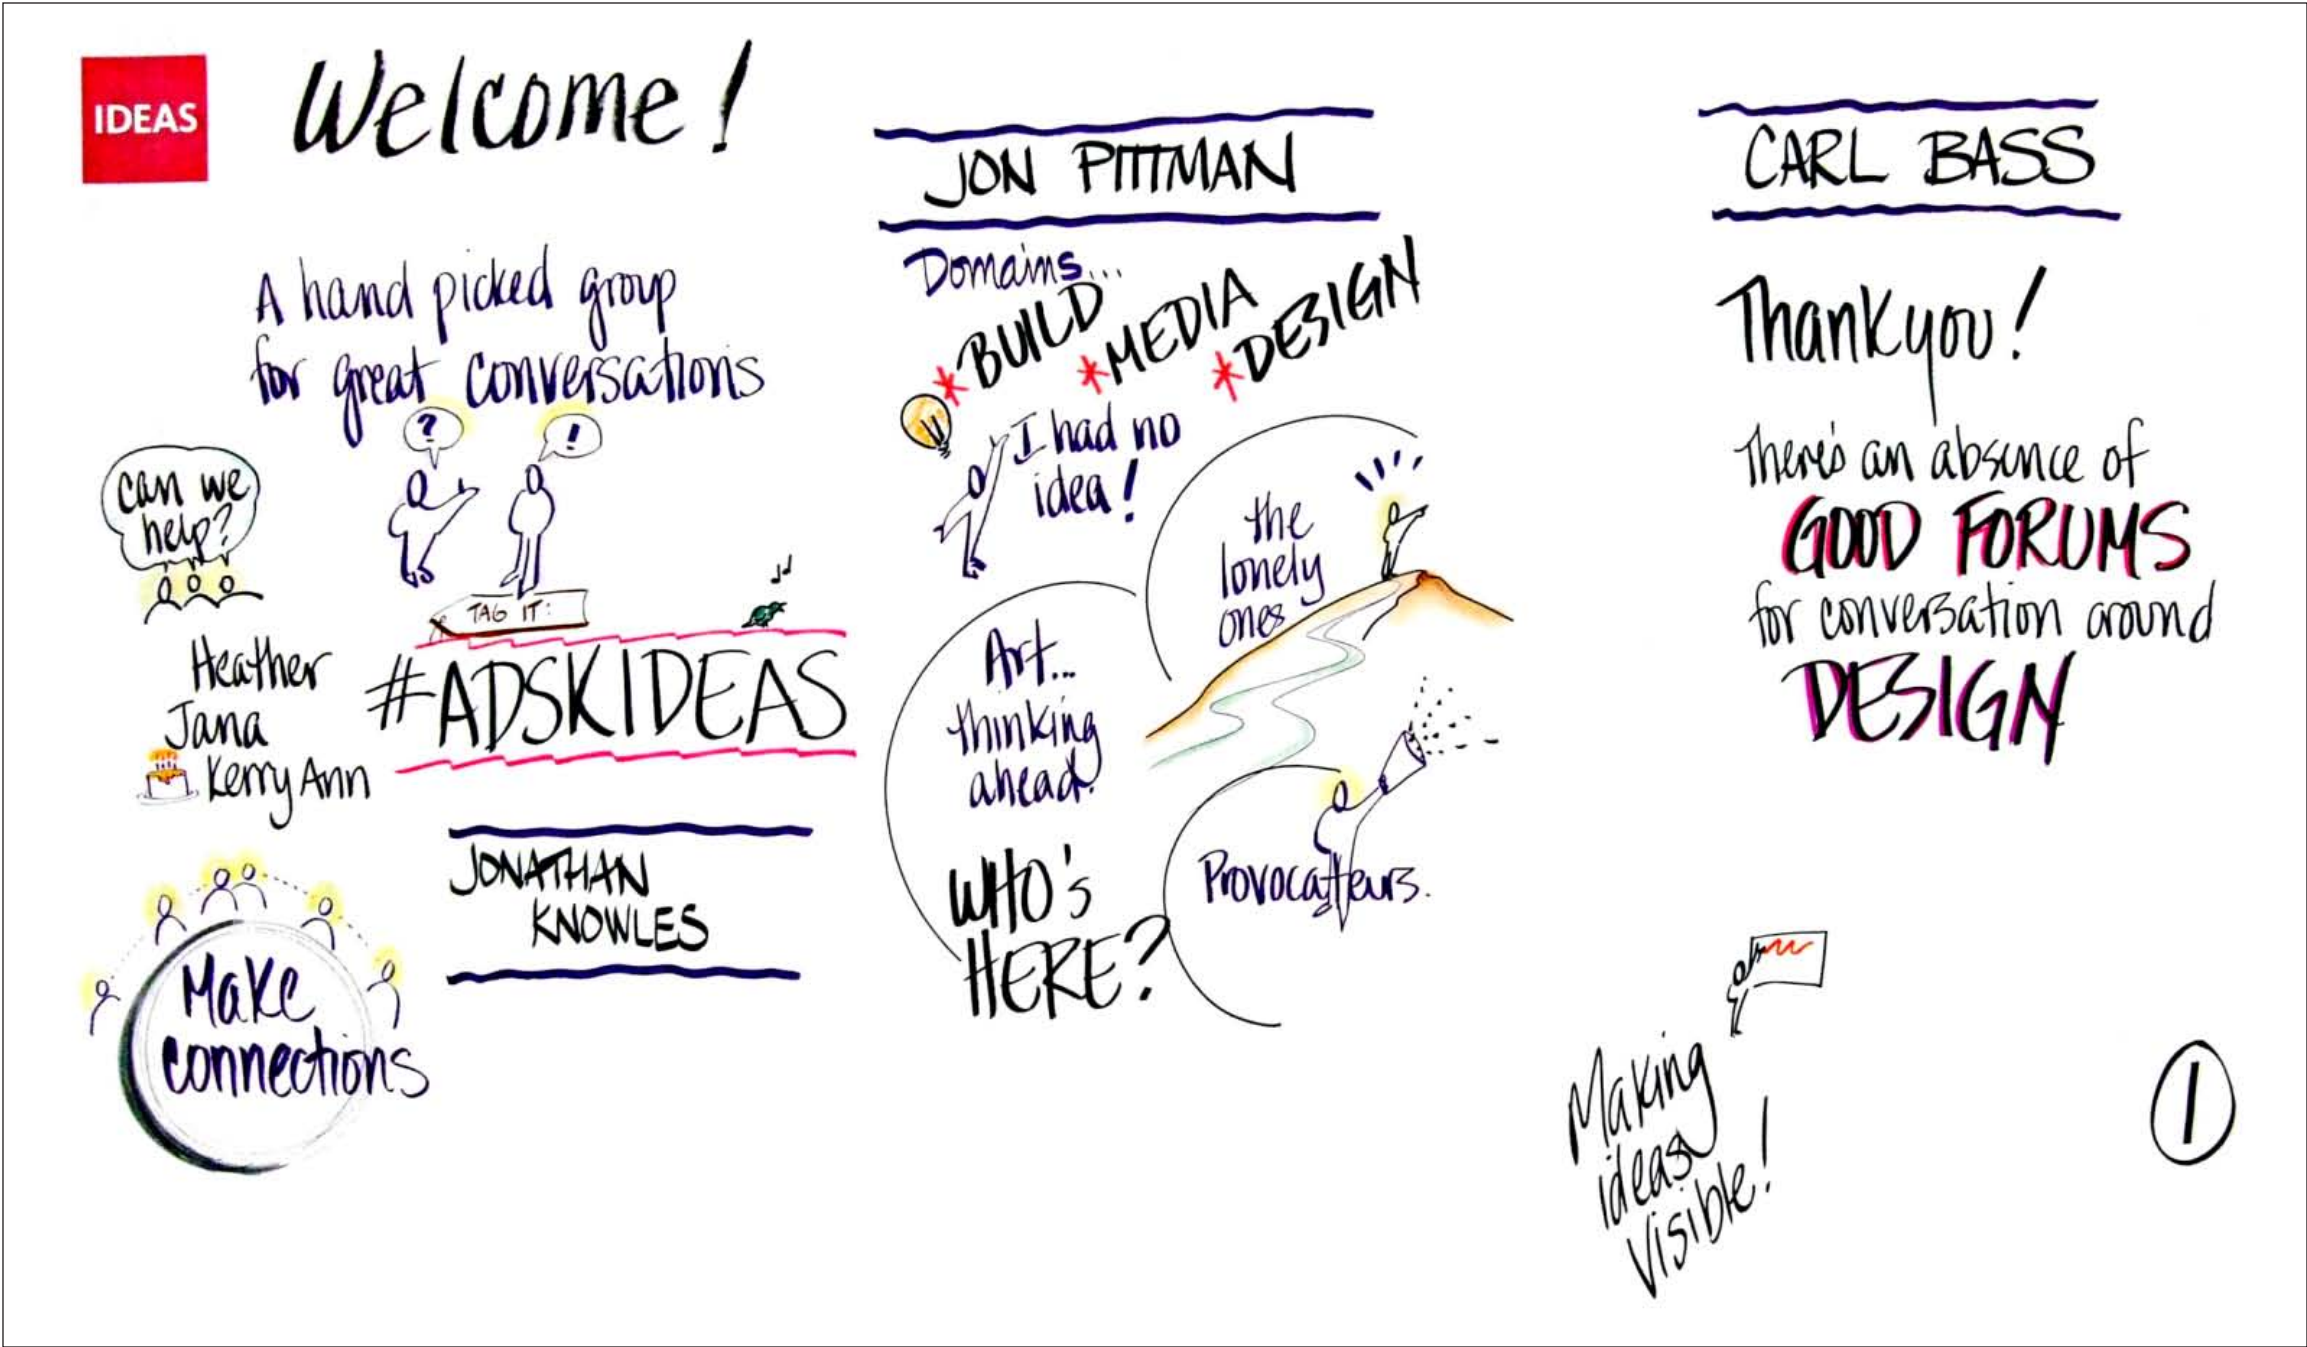 IDEAS
Welcome!
A hand picked group
for great conversations
?
!
can we
help?
TAG IT:
#ADSKIDEAS
Heather
Jana
Kerry Ann
JONATHAN
KNOWLES
Make
connections
JON PITTMAN
Domains...
*BUILD
*MEDIA
*DESIGN
I had no
idea!
the
lonely
ones
Art...
thinking
ahead.
WHO'S
HERE?
Provocateurs.
CARL BASS
Thank you!
There's an absence of
GOOD FORUMS
for conversation around
DESIGN
Making
ideas
visible!
1